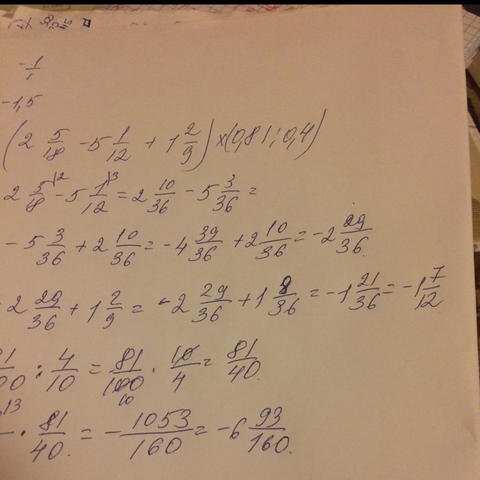 -1/1
-1,5
(2 5/18 - 5 1/12 + 1 2/9) × (0,81 : 0,4)
2 5/18 - 5 1/12 = 2 10/36 - 5 3/36 =
- 5 3/36 + 2 10/36 = -4 39/36 + 2 10/36 = -2 29/36
2 29/36 + 1 2/9 = -2 29/36 + 1 8/36 = -1 21/36 = -1 7/12
: 4/10 = 81/100 · 10/4 = 81/40.
13 · 81/40. = - 1053/160 = -6 93/160.